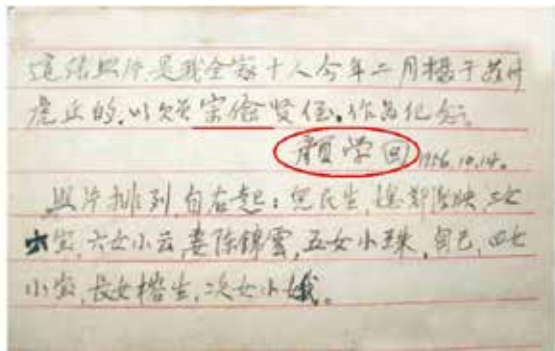 這張照片是我全家十人今年二月攝于苏州
虎丘的,以欠 宗 贤侄,作为纪念。
顏学回 1956.10.14。
照片排列,自右起:児民生,媳郑 映,三女
小 ,六女小云,妻陈錦雲,五女小珠,自己,四女
小 ,長女榕生,次女小娥。